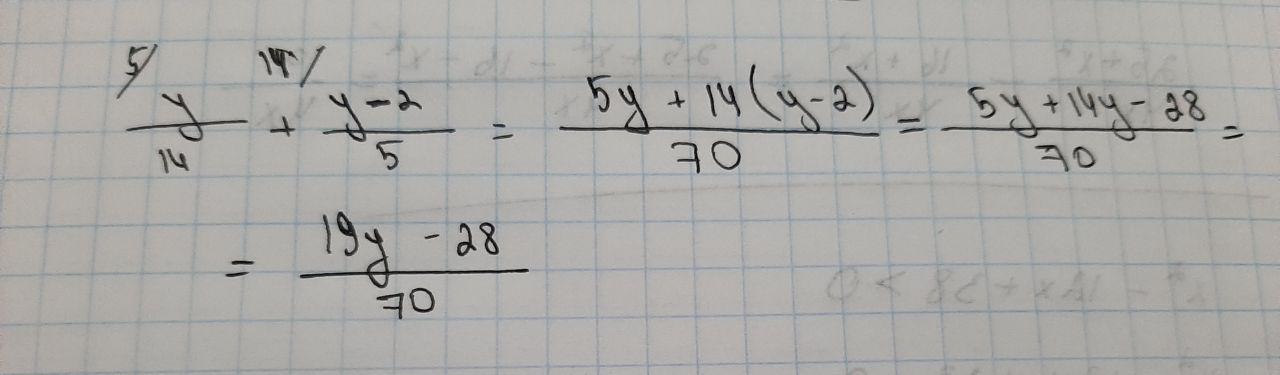 5/ y/14 + 14/ (y-2)/5 = (5y + 14(y-2))/70 = (5y + 14y - 28)/70 =
= (19y - 28)/70